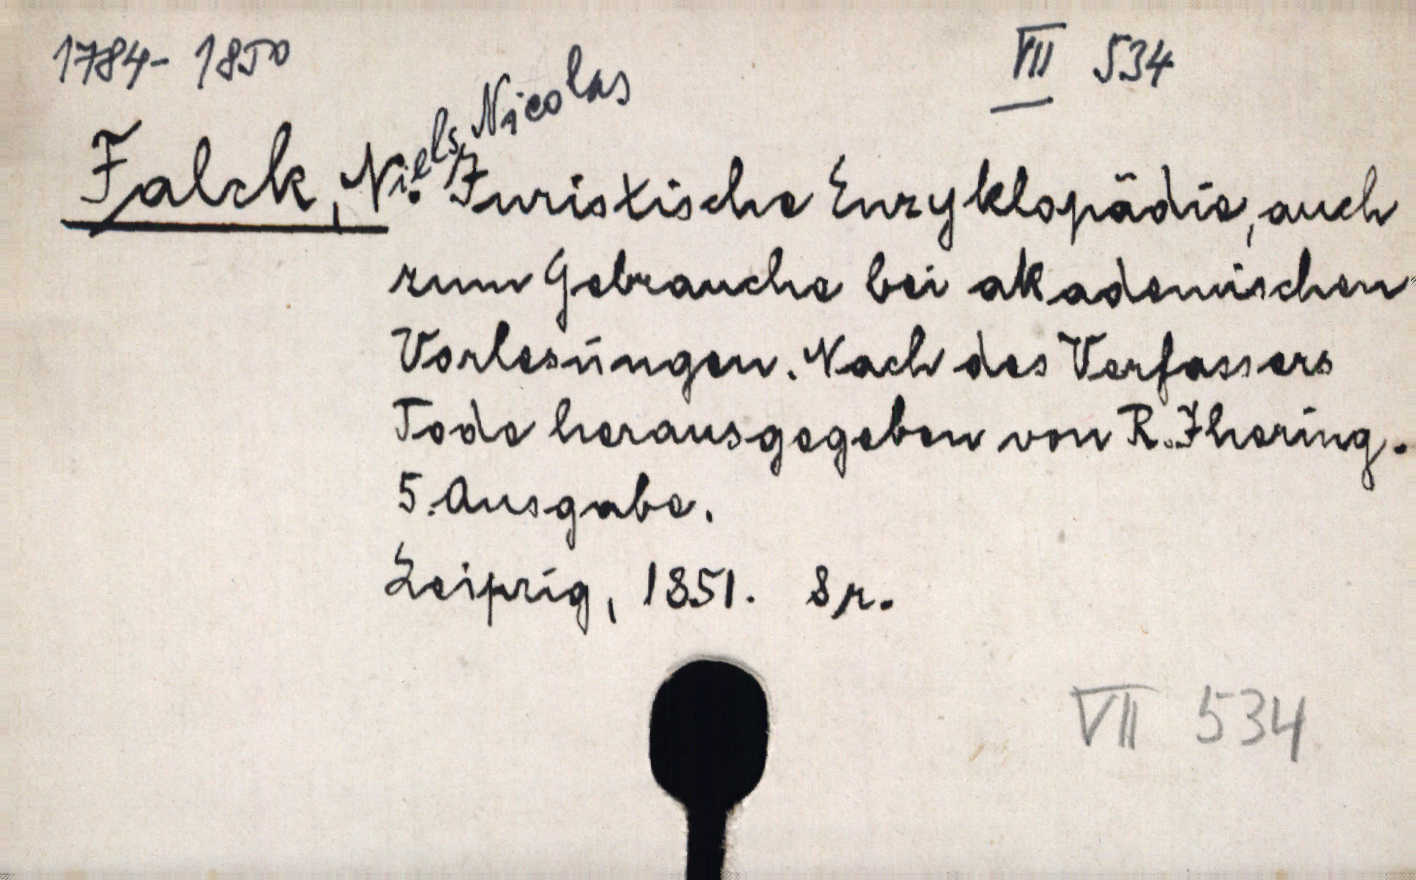 1784-1850
VII 534
Falck, Niels Nicolas
Juristische Enzyklopädie, auch
zum Gebrauche bei akademischen
Vorlesungen. Nach des Verfassers
Tode herausgegeben von R. Jhering.
5. Ausgabe.
Leipzig, 1851. 8 r.
VII 534